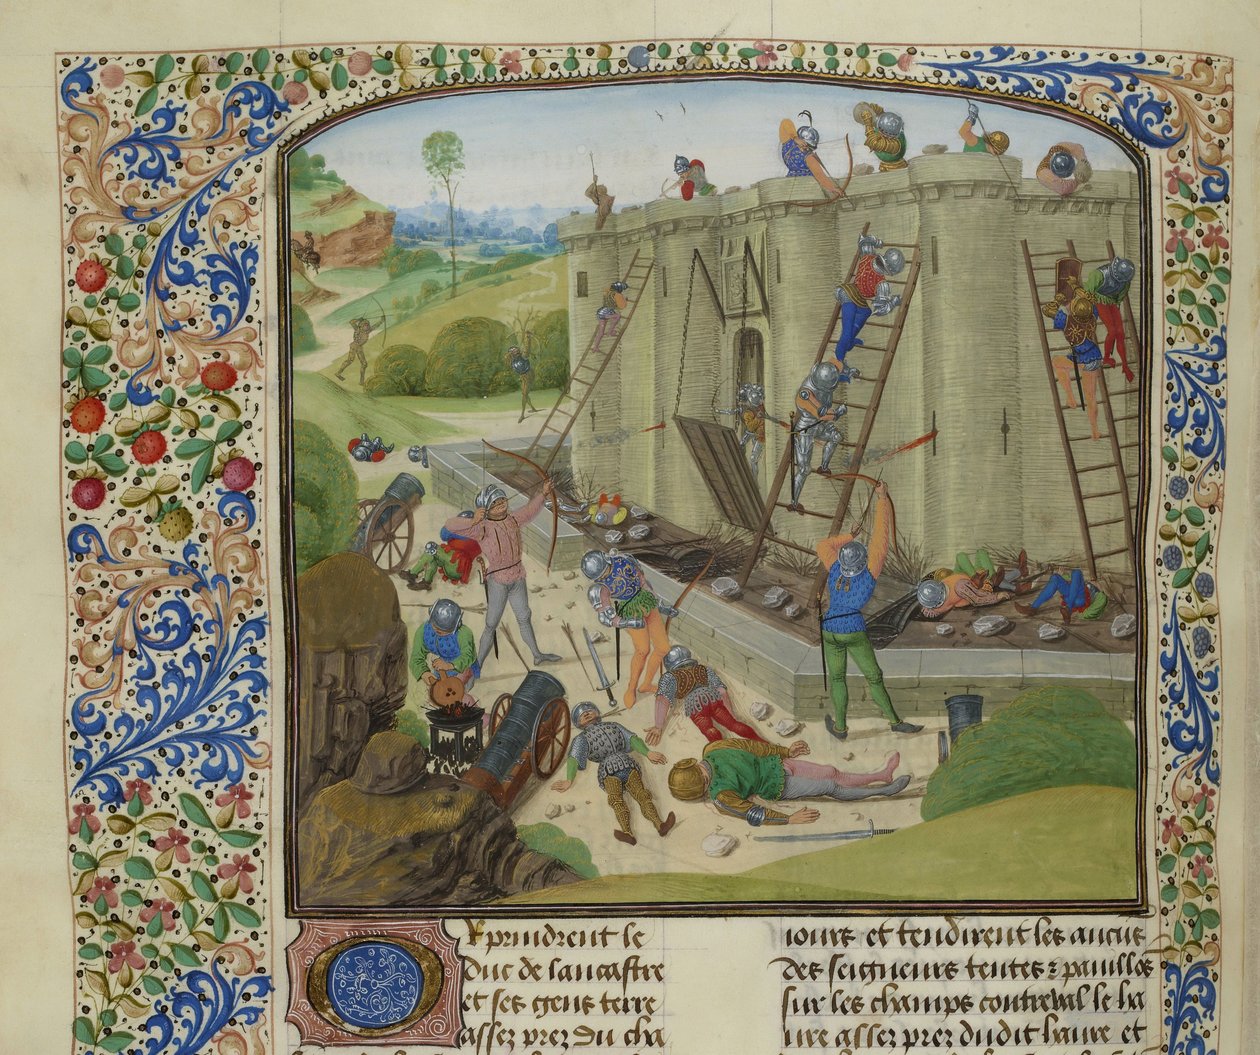 Or prindrent le
Duc de lancastre
et ses gens terre
assez prez du cha
iours et tendirent les aucus
des seigneurs tentes z pauillos
sur les champs contreval le ha
ure assez prez dudit haure et